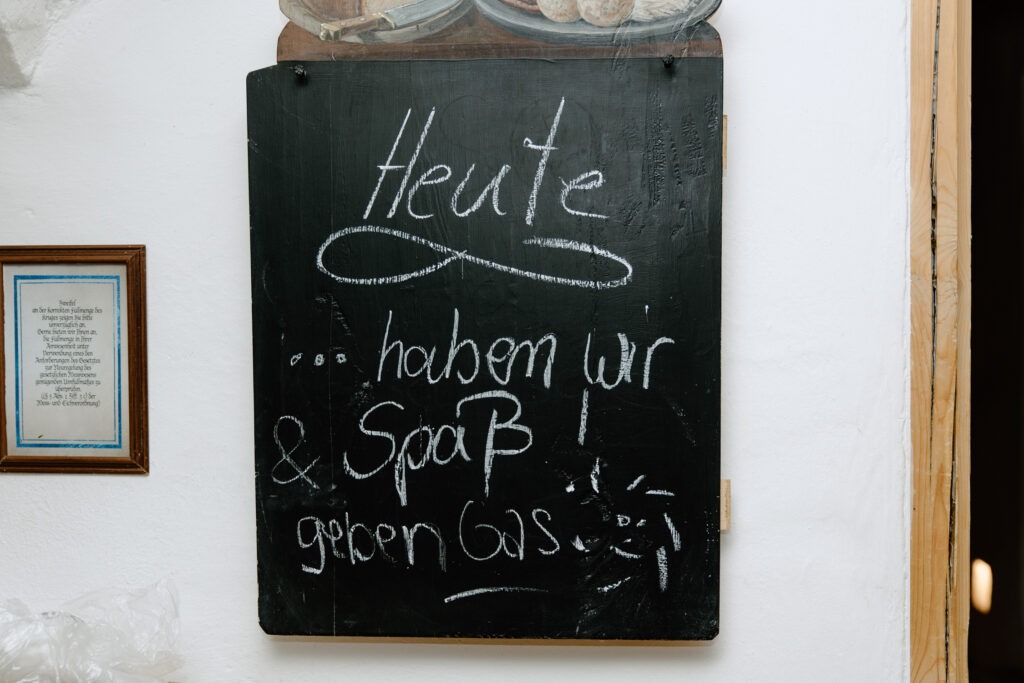 Heute
... haben wir
& Spaß
geben Gas
Zweifel
an der korrekten Füllmenge des
Kruges zeigen Sie bitte
unverzüglich an.
Gerne bieten wir Ihnen an,
die Füllmenge in Ihrer
Anwesenheit unter
Verwendung eines den
Anforderungen des Gesetzes
zur Neuregelung des
gesetzlichen Messwesens
genügenden Umfüllmaßes zu
überprüfen.
Mess- und Eichverordnung)